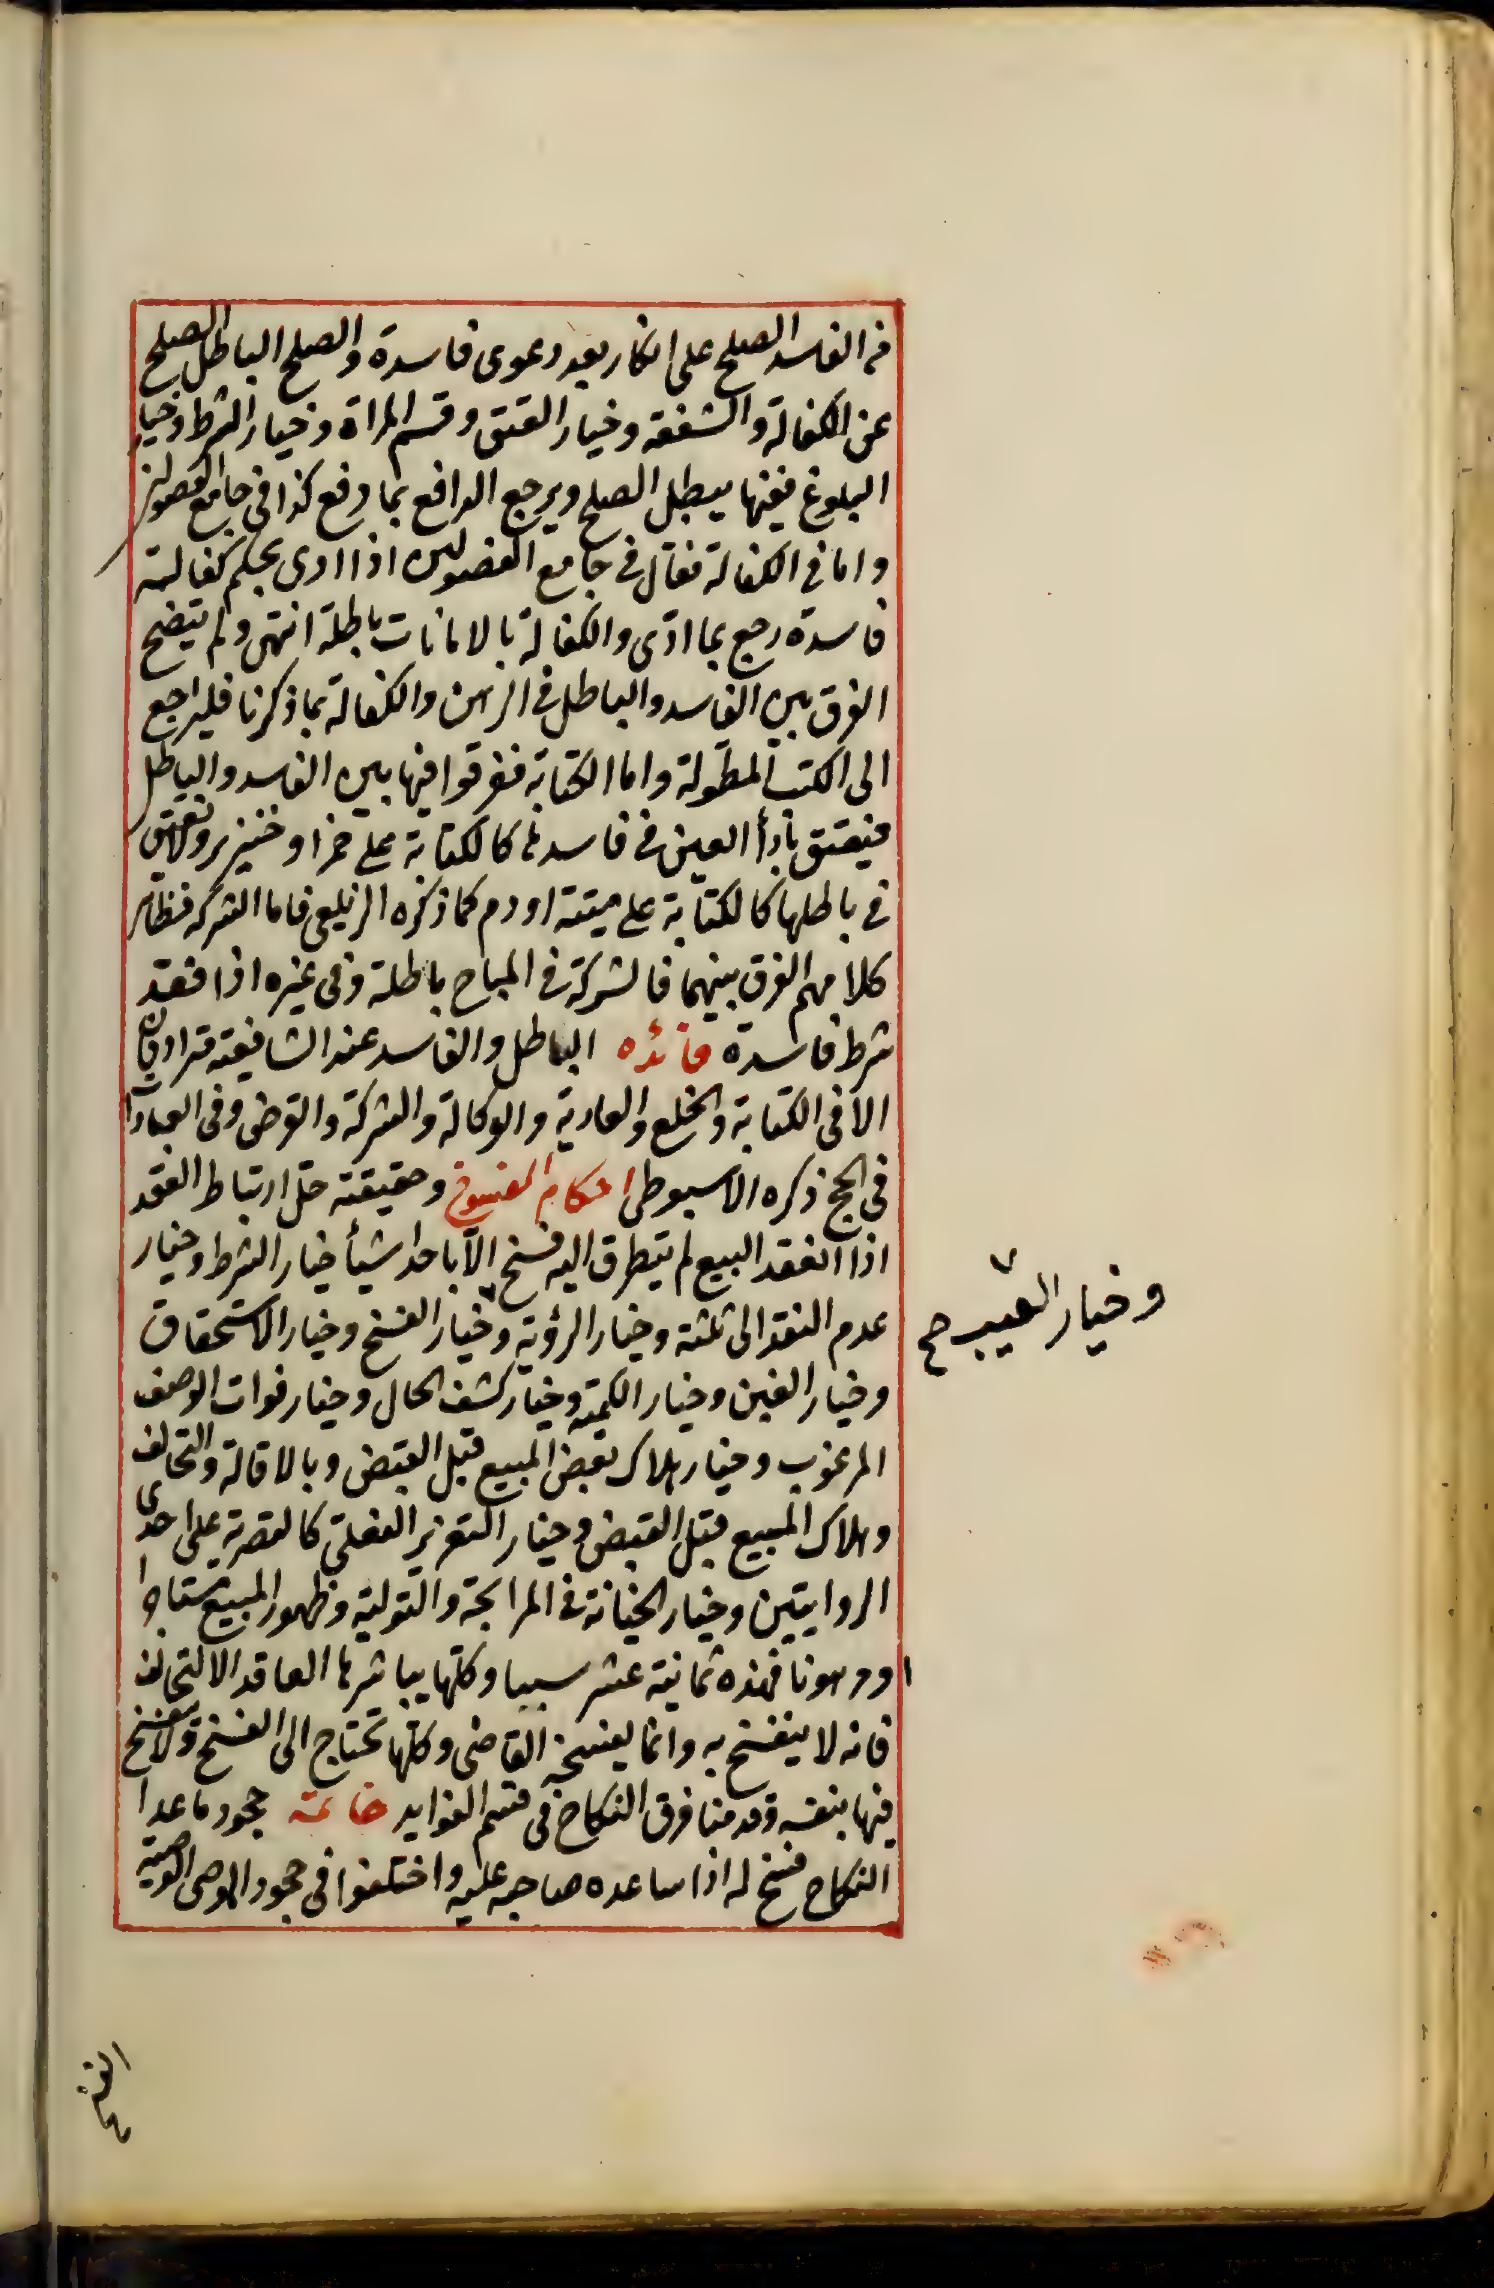 من الفاسد الصلح على انكار بعد دعوى فاسدة والصلح الباطل الصلح
عن الكفالة والشفعة وخيار العتق وقسم المراة وخيار الشرط وخيار
البلوغ ففيها يبطل الصلح ويرجع الدافع بما دفع كذا في جامع الفصولين
واما في الكفالة فقال في جامع الفصولين اذا ادى بحكم كفالة
فاسدة رجع بما ادّى والكفالة بالامانات باطلة انتهى ولم يتضح
الفرق بين الفاسد والباطل في الرهن والكفالة بما ذكرنا فليراجع
الى الكتب المطولة واما الكتابة ففرقوا فيها بين الفاسد والباطل
فيعتق بأدأ العين في فاسدها كالكتابة على خمر او خنزير ولا يعتق
في باطلها كالكتابة على ميتة او دم كما ذكره الزيلعي فاما الشركة فظاهر
كلامهم الفرق بينهما فالشركة في المباح باطلة وفي غيره اذا فقد
شرط فاسدة فائده الباطل والفاسد عند الشافعية مترادفان
الا في الكتابة والخلع والعارية والوكالة والشركة والقرض وفي العبادات
في الحج ذكره الاسيوطي احكام الفسوخ وحقيقته حلّ ارتباط العقد
اذا انعقد البيع لم يتطرق اليه فسخ الا باحد اشيأ خيار الشرط وخيار
عدم النقد الى ثلثة وخيار الرؤية وخيار الفسخ وخيار الاستحقاق
وخيار العيب صح
وخيار الغبن وخيار الكمية وخيار كشف الحال وخيار فوات الوصف
المرغوب وخيار هلاك بعض المبيع قبل القبض وبالاقالة والتحالف
وهلاك المبيع قبل القبض وخيار التغرير الفعلي كالتصرية على احدى
الروايتين وخيار الخيانة في المرابحة والتولية وظهور المبيع مستاجرا
او مرهونا فهذه ثمانية عشر سببا وكلها يباشرها العاقد الا التحالف
فانه لا ينفسخ به وانما يفسخه القاضي وكلها تحتاج الى الفسخ ولا ينفسخ
فيها بنفسه وقدمنا فرق النكاح في قسم الفوايد خاتمة جحود ما عدا
النكاح فسخ له اذا ساعده صاحبه عليه واختلفوا في جحود الموصي الوصية